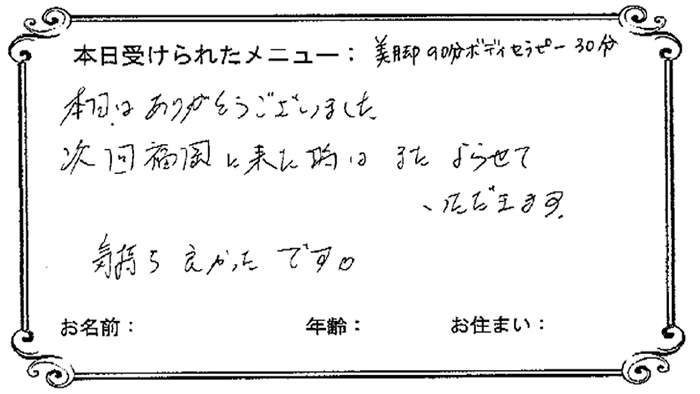 本日受けられたメニュー： 美脚90分ボディセラピー30分
本日はありがとうございました
次回福岡に来た時は またよらせて
いただきます。
気持ち良かったです。
お名前： 年齢： お住まい：